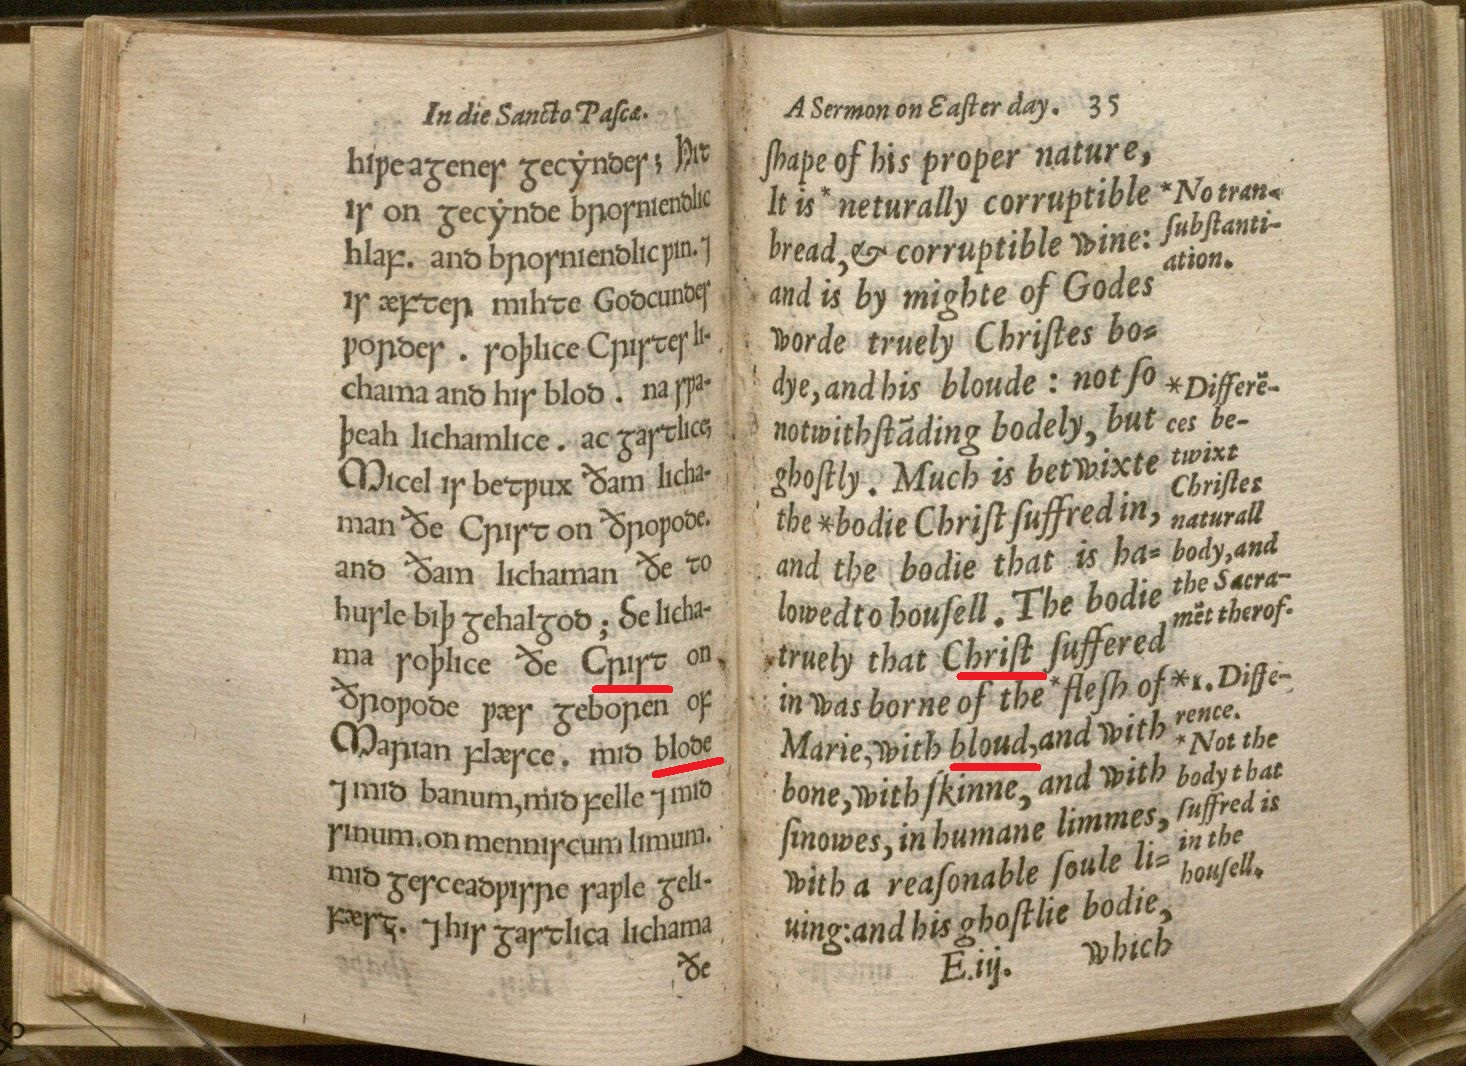 In die Sancto Pascæ.
hiƿe agenes gecẏndes; Hit
is on gecẏnde brosniendlic
hlaf. and brosniendlic ƿin. ⁊
is æfter mihte Godcundes
ƿordes . soþlice Cristes li-
chama and his blod . na sƿa-
þeah lichamlice . ac gastlice;
Micel is betƿux ðam licha-
man ðe Crist on ðroƿode.
and ðam lichaman ðe to
husle biþ gehalgod ; Se licha-
ma soþlice ðe Crist on
ðroƿode ƿæs geboren of
Marian flæsce . mid blode
⁊ mid banum, mid felle ⁊ mid
sinum. on menniscum limum.
mid gesceadƿisre saƿle geli-
fæst. ⁊ his gastlica lichama
ðe
A Sermon on Easter day. 35
ſhape of his proper nature,
It is* neturally corruptible
bread, & corruptible wine:
and is by mighte of Godes
worde truely Chriſtes bo=
dye, and his bloude : not ſo
notwithſtãding bodely, but
ghoſtly. Much is betwixte
the *bodie Chriſt ſuffred in,
and the bodie that is ha=
lowed to houſell. The bodie
truely that Chriſt ſuffered
in was borne of the *fleſh of
Marie, with bloud, and with
bone, with ſkinne, and with
ſinowes, in humane limmes,
with a reaſonable ſoule li=
uing: and his ghoſtlie bodie,
E.iij. which
*No tran-
ſubſtanti-
ation.
*Differẽ-
ces be-
twixt
Chriſtes
naturall
body, and
the Sacra-
mẽt therof.
*1. Diffe-
rence.
*Not the
body that
ſuffred is
in the
houſell.